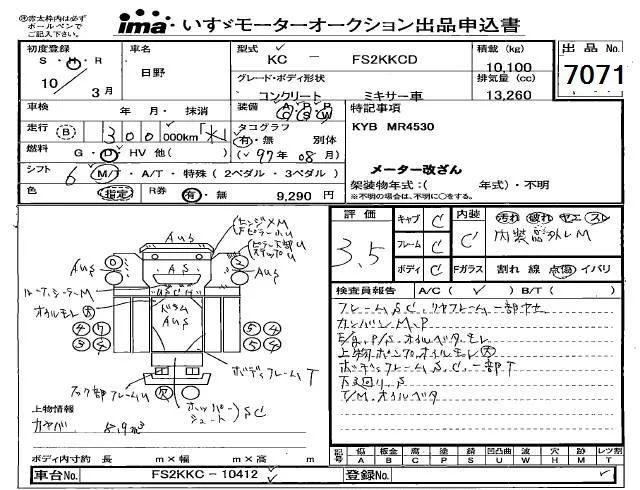 ※赤太枠内は必ず
ボールペンで
ご記入下さい。
ima いすゞモーターオークション出品申込書
初度登録 S・H・R 10/3月
車名 日野
型式 KC - FS2KKCD
グレード・ボディ形状 コンクリート ミキサー車
積載 (kg) 10,100
排気量 (cc) 13,260
出品 No. 7071
車検 年 月・ 抹消
装備 A/C P/S P/W
走行 B 300 000km
タコグラフ 有・無 別体
燃料 G・D・HV 他( )
(97年 08月)
シフト 6 M/T・A/T・特殊(2ペダル・3ペダル)
色 指定
R券 有・無 9,290 円
特記事項
KYB MR4530
メーター改ざん
架装物年式:( 年式)・不明
※不明の場合は、不明に○をする。
評価 3.5
キャブ C
フレーム C
ボディ C
内装 C
汚れ 破れ ヤニ スレ
内装部外しM
Fガラス 割れ 線 点傷 イバリ
検査員報告 A/C( ✓ ) B/T( )
フレームS C、リヤフレーム一部ヤセ
カンバンM、P
E/g、P/S、オイルベタ、モレ
上物ポンプ、オイルモレ大
ボディフレームS、C、一部T
下廻り、S
T/M、オイルベタ
AUS
AUS
AUS
AS
ASCM
ドラム
AUS
オイルモレ大
ボディフレームT
フック部フレームU
ホッパー
シュート
SC
上物情報
カヤバ 8.9m³
ボディ内寸 約 長 m×幅 m×高 m
記号 傷 A 板金 B 腐 C 塗 P 錆 S 凹凸曲 U 波 W 穴 H 跡 M レツ割 T
車台No. FS2KKC-10412
登録No.